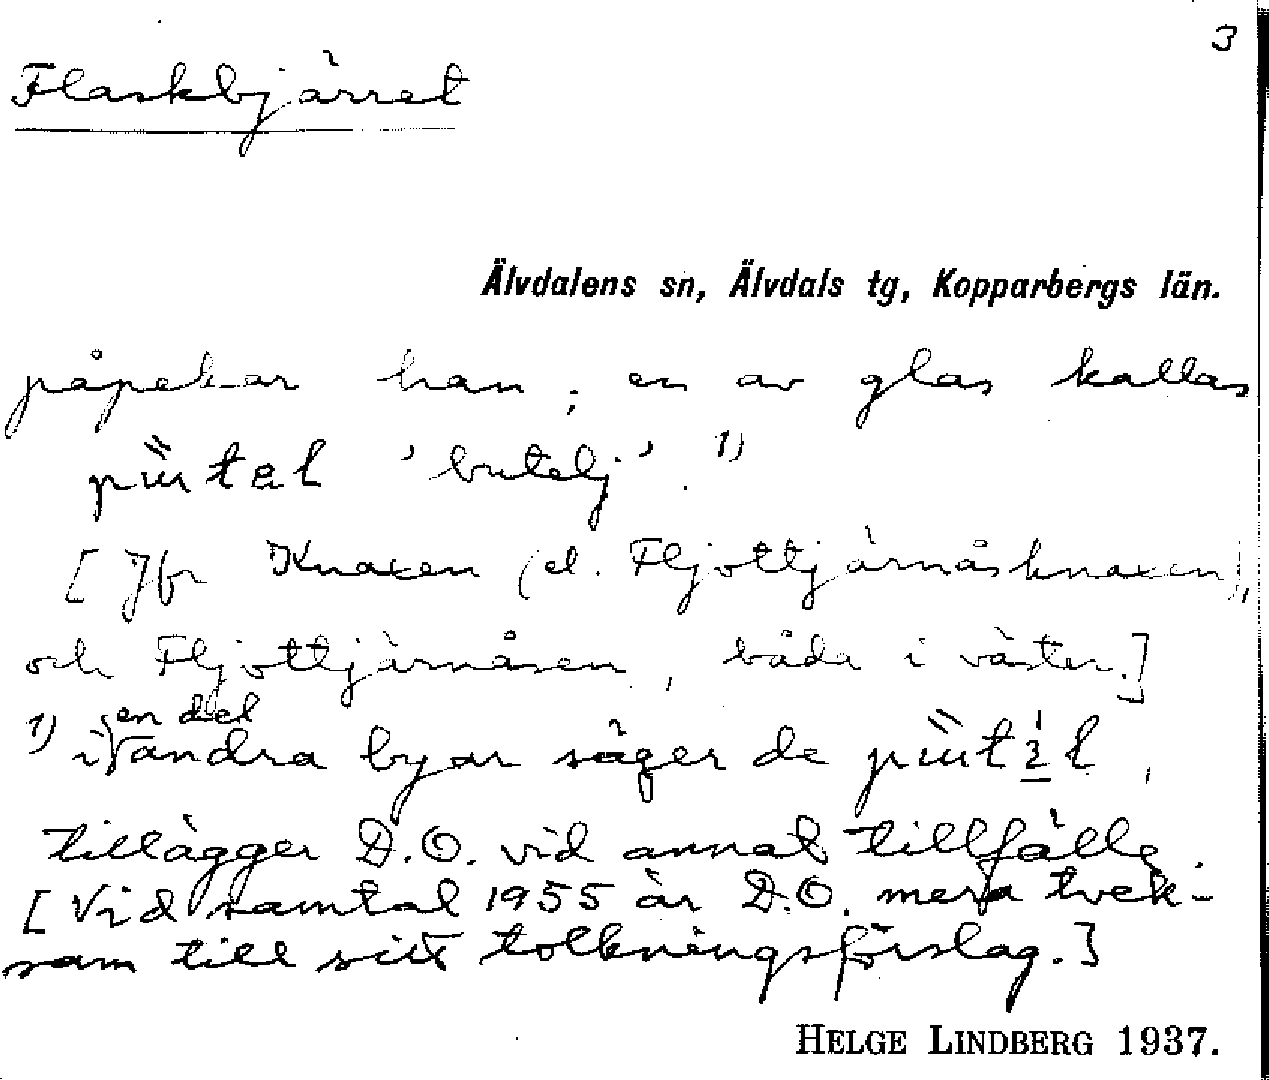 3
Flaskbjärret
Älvdalens sn, Älvdals tg, Kopparbergs län.
påpekar han; en av glas kallas
'butelj'. 1)
[Jfr Knaxen (el. Fljottjärnåsknaxen),
och Fljottjärnåsen, båda i väster.]
1) i en del andra byar säger de
tillägger D.O. vid annat tillfälle.
[Vid samtal 1955 är D.O. mera tvek-
sam till sitt tolkningsförslag.]
HELGE LINDBERG 1937.